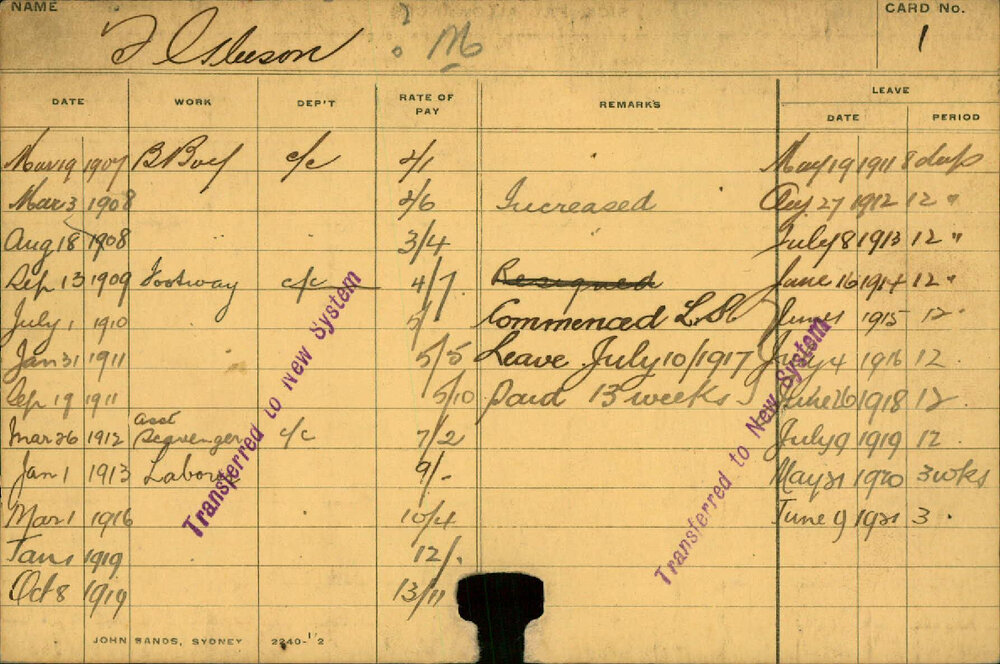 NAME
CARD No.
J Gleeson ? M
1
DATE WORK DEP'T RATE OF PAY REMARKS LEAVE
DATE PERIOD
Mar 19 1907 B Boy c/c 2/1 May 19 1911 8 days
Mar 3 1908 2/6 Increased Aug 27 1912 12 "
Aug 18 1908 3/4 July 8 1913 12 "
Sep 13 1909 Footway c/c 4/7 Resigned June 16 1914 12 "
July 1 1910 5/ Commenced L.S. 1915 12 "
Jan 31 1911 5/5 Leave July 10/1917 July 4 1916 12
Sep 19 1911 5/10 paid 13 weeks June 26 1918 12
Mar 26 1912 asst Scavenger c/c 7/2 July 9 1919 12
Jan 1 1913 Laborer 9/- May 31 1920 3 wks
Mar 1 1916 10/4 June 9 1921 3
Jan 1 1919 12/-
Oct 8 1919 13/11
Transferred to New System
Transferred to New System
JOHN SANDS, SYDNEY 2240-12